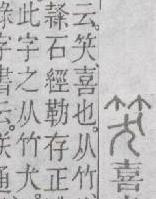 笑喜
云。笑。喜也。从竹
石經勒存正
此字之从竹犬。
字書云。